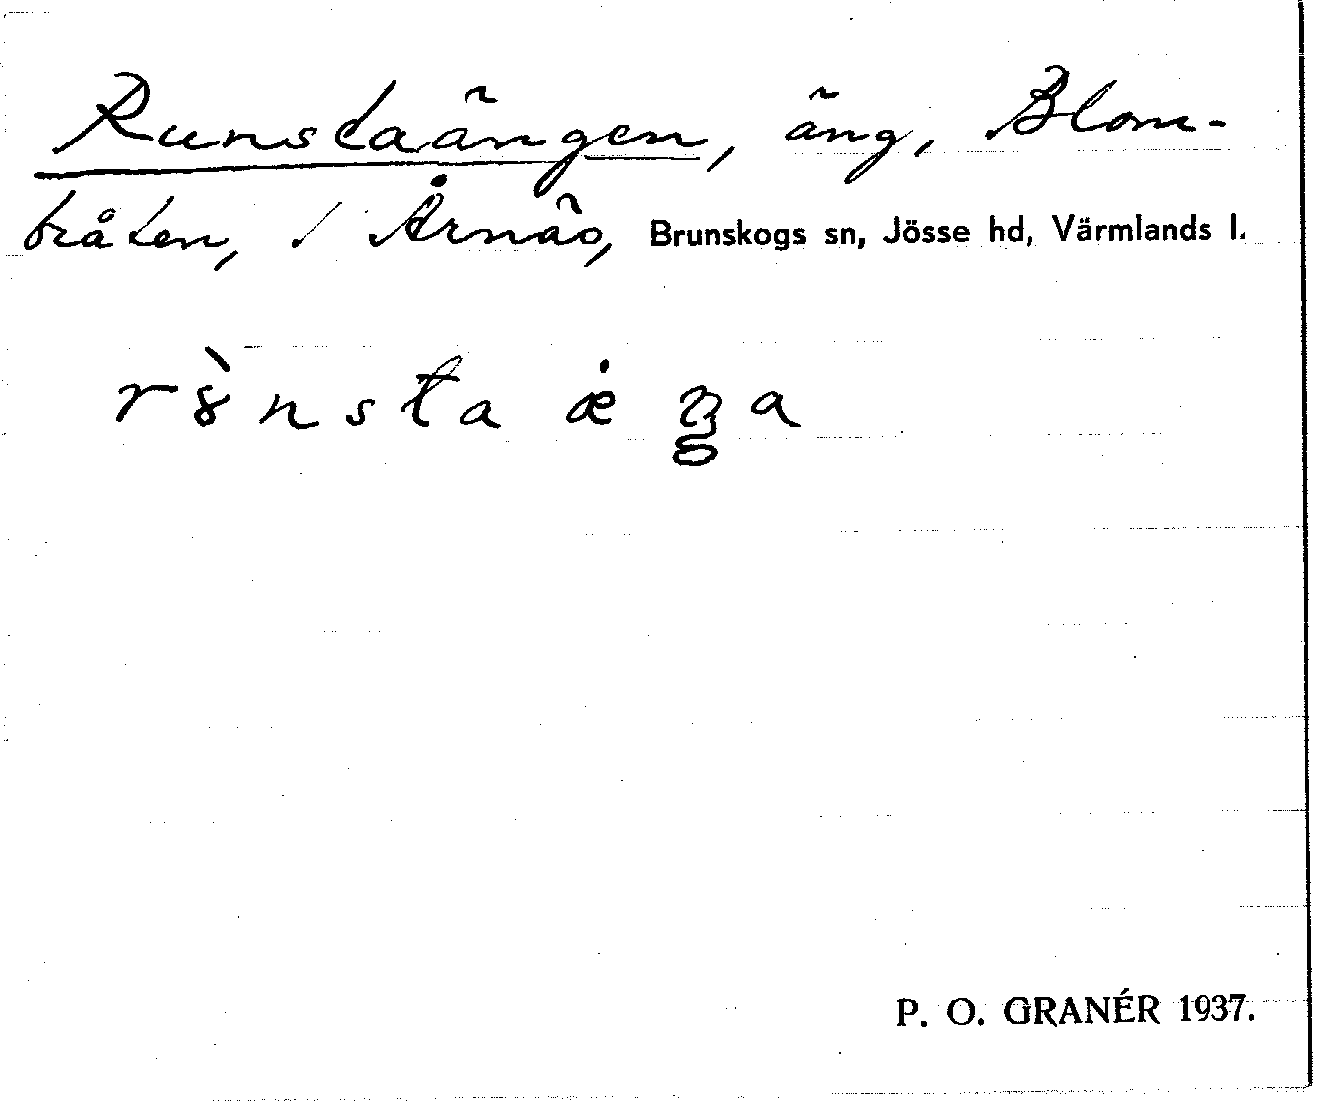 Runstaängen, äng, Blom-
bråten, / Årnäs, Brunskogs sn, Jösse hd, Värmlands l.
P. O. GRANÉR 1937.